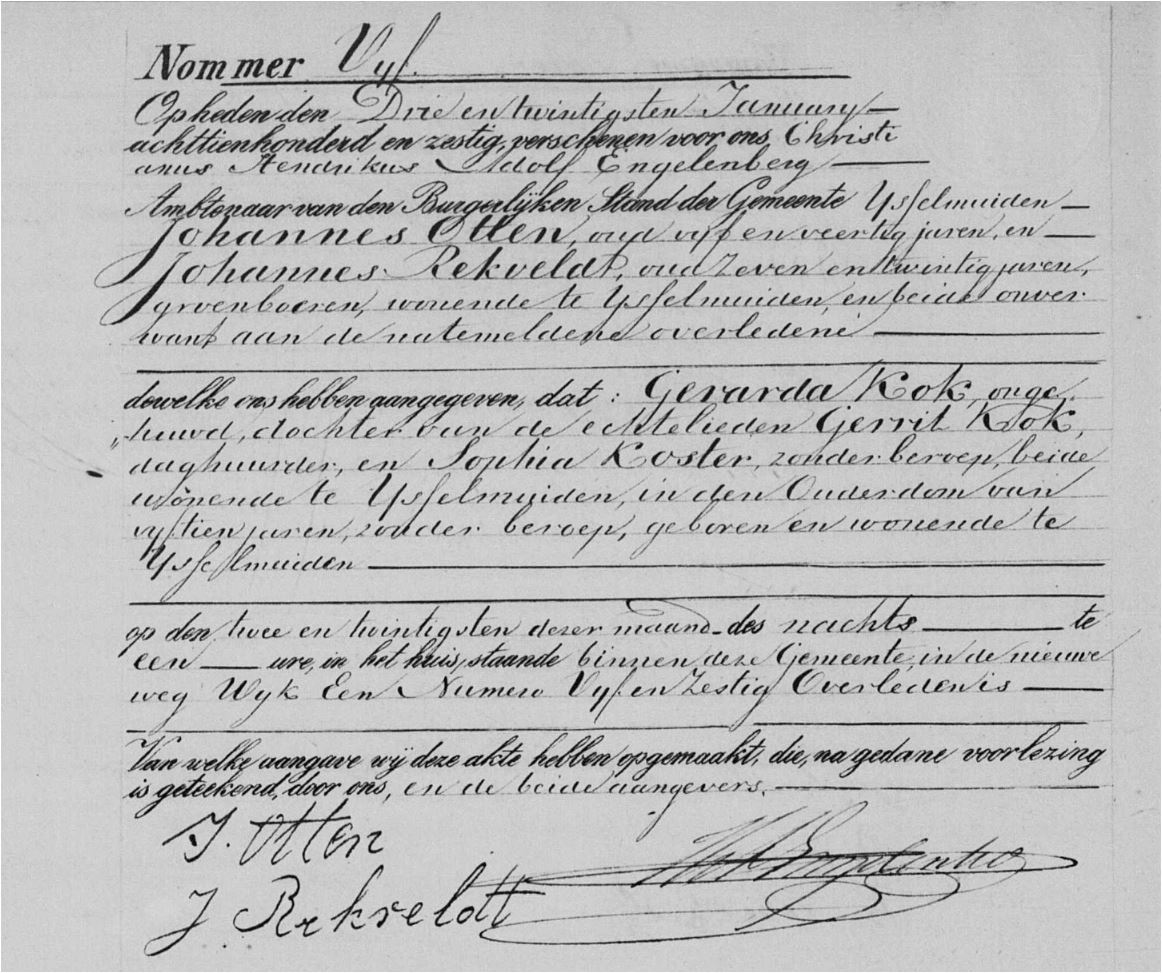 Nommer Vyf.
Op heden den Drie en twintigsten January
achttienhonderd en zestig, verschenen voor ons Christi
anus Hendrikus Adolf Engelenberg
Ambtenaar van den Burgerlijken Stand der Gemeente Ysselmuiden
Johannes Otten, oud vyf en veertig jaren, en
Johannes Rekveldt, oud Zeven en twintig jaren,
groenboeren, wonende te Ysselmuiden, en beide onver
want aan de natemeldene overledene
dewelke ons hebben aangegeven, dat: Gerarda Kok, onge„
„huwd, dochter van de echtelieden Gerrit Kok,
daghuurder, en Sophia Koster, zonder beroep, beide
wonende te Ysselmuiden, in den Ouderdom van
vyftien jaren, zonder beroep, geboren en wonende te
Ysselmuiden
op den twee en twintigsten dezer maand des nachts te
een ure, in het huis, staande binnen deze Gemeente, in de nieuwe
weg Wyk Een Numero Vyf en Zestig Overleden is
Van welke aangave wij deze akte hebben opgemaakt, die, na gedane voorlezing
is geteekend, door ons, en de beide aangevers.
J. Otten
J Rekveldt